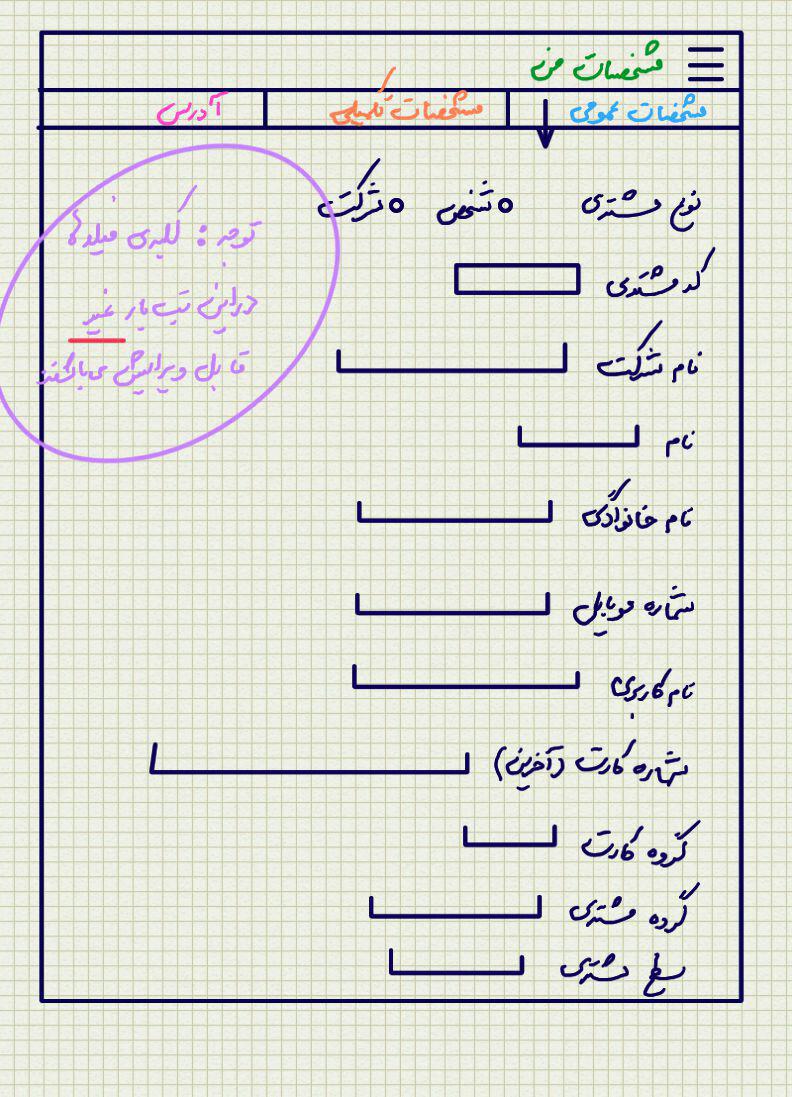 مشخصات من
مشخصات عمومی
مشخصات تکمیلی
آدرس
نوع مشتری
شخص
شرکت
کد مشتری
نام شرکت
نام
نام خانوادگی
شماره موبایل
نام کاربری
شماره کارت (آخرین)
گروه کارت
گروه مشتری
سطح مشتری
توجه : کلیدی فیلدها
در این تب باز غیر
قابل ویرایش می‌باشند